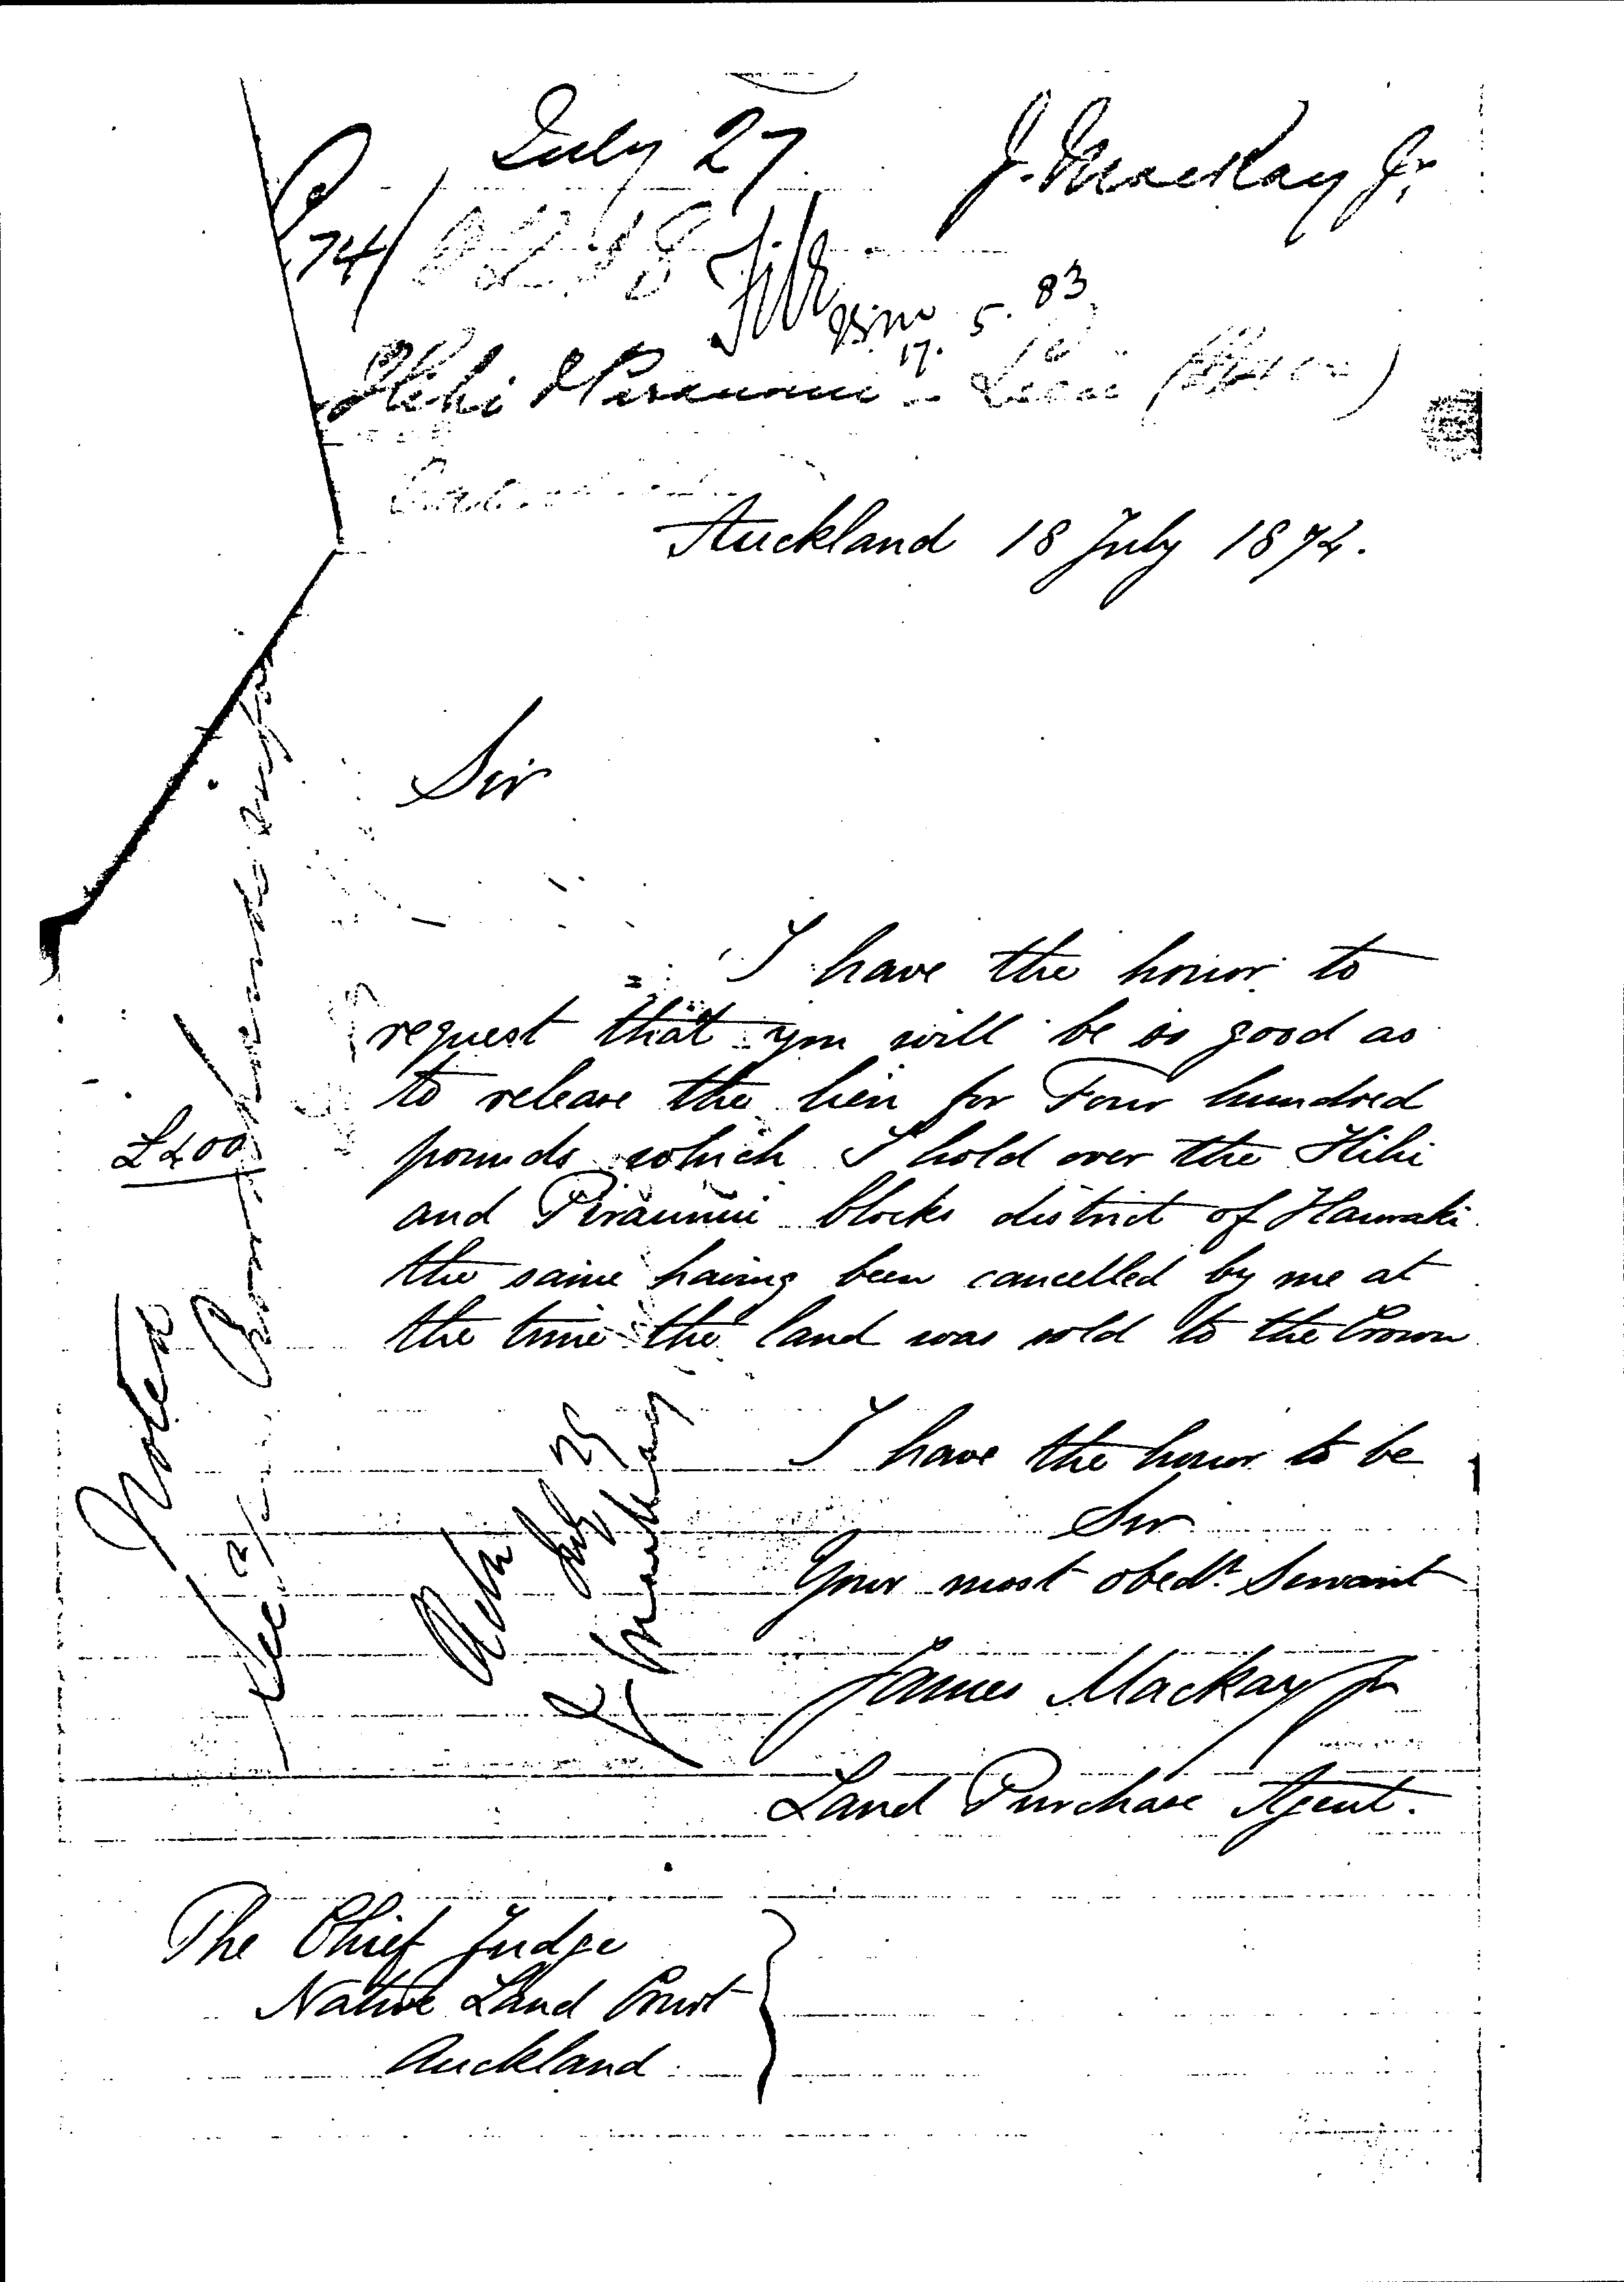 July 27
J. Mackay Jr
74/
File
17. 5. 83
Hihi & Piraunui
Auckland 18 July 1874.
Sir
I have the honor to
request that you will be so good as
to release the lien for Four hundred
pounds which I hold over the Hihi
and Piraunui blocks district of Hauraki
the same having been cancelled by me at
the time the land was sold to the Crown
£400
Noted
July 29
I have the honor to be
Sir
Your most obedt. Servant
James Mackay Jr
Land Purchase Agent.
The Chief Judge
Native Land Court
Auckland